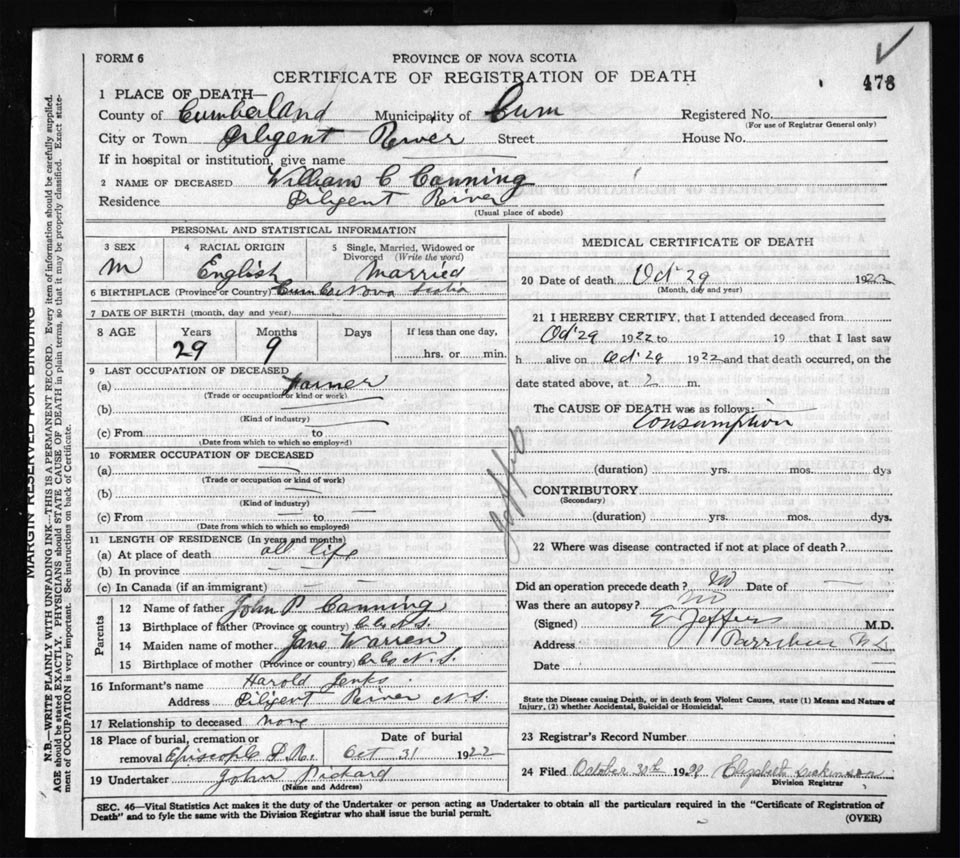 FORM 6
PROVINCE OF NOVA SCOTIA
CERTIFICATE OF REGISTRATION OF DEATH
478
1 PLACE OF DEATH—
County of Cumberland Municipality of Cum Registered No.
(For use of Registrar General only)
City or Town Diligent River Street House No.
If in hospital or institution, give name
2 NAME OF DECEASED William C Canning
Residence Diligent River
(Usual place of abode)
PERSONAL AND STATISTICAL INFORMATION
3 SEX 4 RACIAL ORIGIN 5 Single, Married, Widowed or Divorced (Write the word)
M English Married
6 BIRTHPLACE (Province or Country) Cumb Co Nova Scotia
7 DATE OF BIRTH (month, day and year)
8 AGE Years Months Days If less than one day,
29 9 hrs. or min.
9 LAST OCCUPATION OF DECEASED
(a) Farmer
(Trade or occupation or kind or work)
(b)
(Kind of industry)
(c) From to
(Date from which to which so employed)
10 FORMER OCCUPATION OF DECEASED
(a)
(Trade or occupation or kind of work)
(b)
(Kind of industry)
(c) From to
(Date from which to which so employed)
11 LENGTH OF RESIDENCE (In years and months)
(a) At place of death all life
(b) In province
(c) In Canada (if an immigrant)
Parents
12 Name of father John P Canning
13 Birthplace of father (Province or country) C. Co N.S.
14 Maiden name of mother Jane Warren
15 Birthplace of mother (Province or country) C. Co N.S.
16 Informant's name Harold Jenks
Address Diligent River N.S.
17 Relationship to deceased none
18 Place of burial, cremation or Date of burial
removal Episcople D.R. Oct 31 1922
19 Undertaker John Rickard
(Name and Address)
MEDICAL CERTIFICATE OF DEATH
20 Date of death Oct 29 1922
(Month, day and year)
21 I HEREBY CERTIFY, that I attended deceased from
Oct 29 1922 to 19 that I last saw
h alive on Oct 29 1922 and that death occurred, on the
date stated above, at 2 m.
The CAUSE OF DEATH was as follows:
Consumption
(duration) yrs. mos. dys
CONTRIBUTORY
(Secondary)
(duration) yrs. mos. dys.
22 Where was disease contracted if not at place of death?
Did an operation precede death? No Date of
Was there an autopsy? No
(Signed) E Jeffers M.D.
Address Parrsboro N.S.
Date
State the Disease causing Death, or in death from Violent Causes, state (1) Means and Nature of
Injury, (2) whether Accidental, Suicidal or Homicidal.
23 Registrar's Record Number
24 Filed October 30th 1922 Elizabeth Dickinson
Division Registrar
SEC. 46—Vital Statistics Act makes it the duty of the Undertaker or person acting as Undertaker to obtain all the particulars required in the "Certificate of Registration of
Death" and to fyle the same with the Division Registrar who shall issue the burial permit.
(OVER)
MARGIN RESERVED FOR BINDING
N.B.—WRITE PLAINLY WITH UNFADING INK—THIS IS A PERMANENT RECORD. Every item of information should be carefully supplied.
AGE should be stated EXACTLY. PHYSICIANS should STATE CAUSE OF DEATH in plain terms, so that it may be properly classified. Exact state-
ment of OCCUPATION is very important. See instructions on back of Certificate.